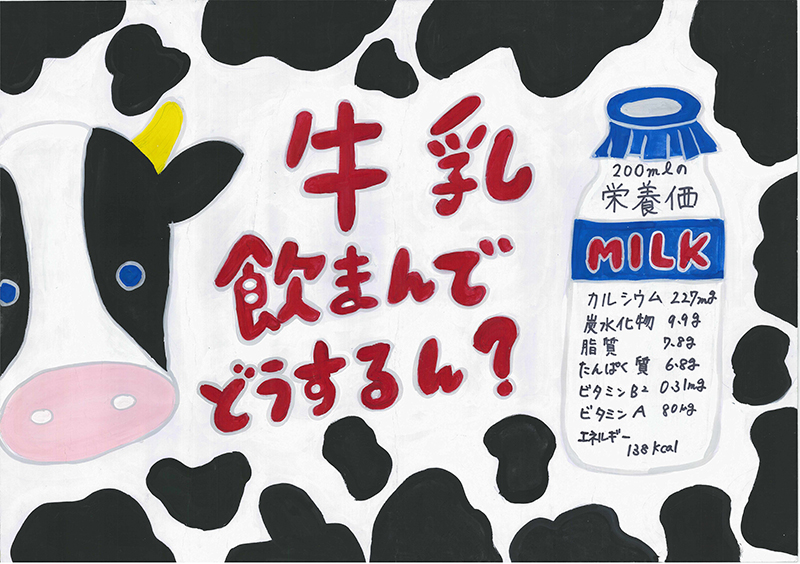 牛乳
飲まんで
どうするん?
200mlの
栄養価
MILK
カルシウム 227mg
炭水化物 9.9g
脂質 7.8g
たんぱく質 6.8g
ビタミンB2 0.31mg
ビタミンA 80μg
エネルギー
138kcal